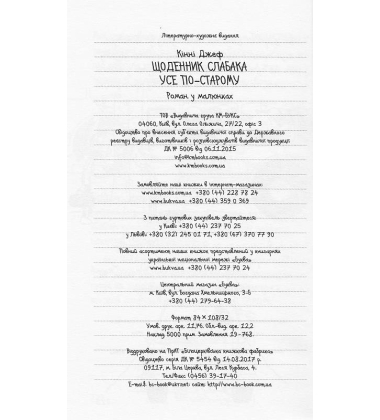 Літературно-художнє видання
Кінні Джеф
ЩОДЕННИК СЛАБАКА
УСЕ ПО-СТАРОМУ
Роман у малюнках
ТОВ «Видавнича група КМ-БУКС»
04060, Київ, вул. Олега Ольжича, 27/22, офіс 3
Свідоцтво про внесення суб'єкта видавничої справи до Державного
реєстру видавців, виготовників і розповсюджувачів видавничої продукції
ДК № 5006 від 06.11.2015
info@kmbooks.com.ua
www.kmbooks.com.ua
Замовляйте наші книжки в інтернет-магазинах:
www.kmbooks.com.ua +380 (44) 228 78 24
www.bukva.ua +380 (44) 359 0 369
З питань гуртових закупівель звертайтеся:
у Києві +380 (44) 237 70 25
у Львові +380 (32) 245 01 71, +380 (67) 370 77 90
Повний асортимент наших книжок представлений у книгарнях
української національної мережі «Буква»:
www.bukva.ua +380 (44) 237 70 24
Центральний магазин «Буква»:
м. Київ, вул. Богдана Хмельницького, 3-б
+380 (44) 279-64-38
Формат 84 × 108/32
Умов. друк. арк. 11,76. Обл.-вид. арк. 12,2
Наклад 5000 прим. Замовлення 19-768.
Віддруковано на ПрАТ «Білоцерківська книжкова фабрика»
Свідоцтво серія ДК № 5454 від 14.08.2017 р.
09117, м. Біла Церква, вул. Леся Курбаса, 4.
Тел./Факс (0456) 39-17-40
E-mail: bc-book@ukr.net; сайт: http://www.bc-book.com.ua